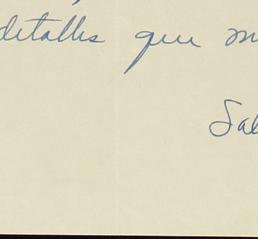 detalles que m
Sal